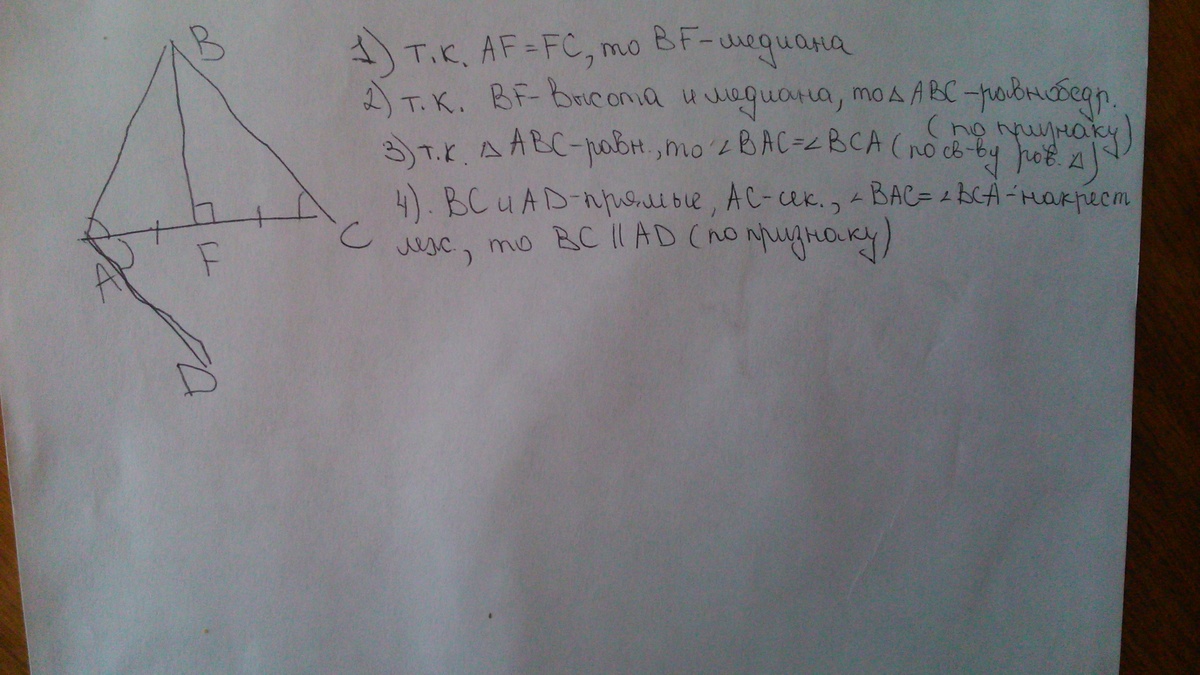 B
A
F
C
D
1) т.к. AF = FC, то BF-медиана
2) т.к. BF-высота и медиана, то △ ABC-равнобедр.
(по признаку)
3) т.к. △ ABC-равн., то ∠BAC=∠BCA (по св-ву рав. △)
4). BC и AD-прямые, AC-сек., ∠BAC=∠BCA-накрест
леж., то BC || AD (по признаку)